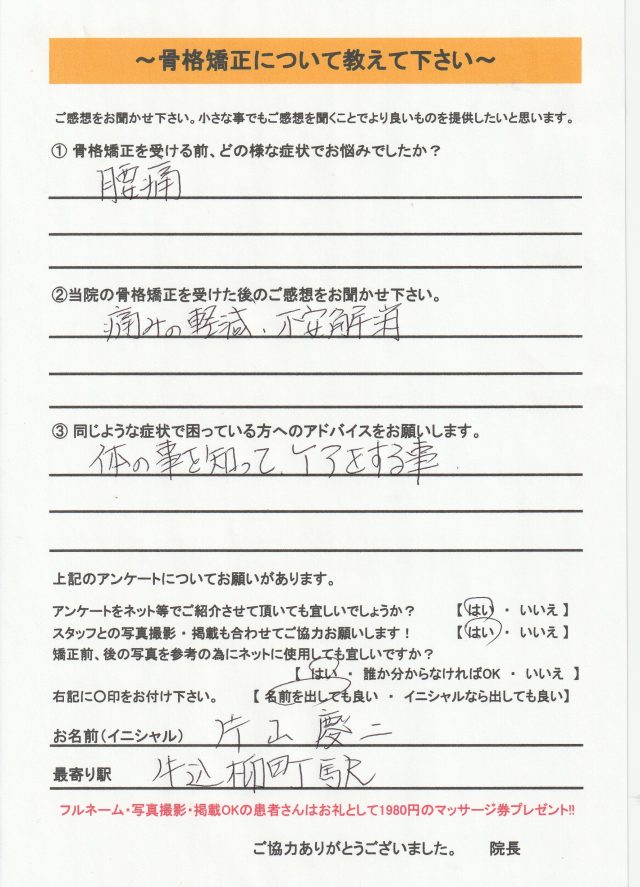 ～骨格矯正について教えて下さい～
ご感想をお聞かせ下さい。小さな事でもご感想を聞くことでより良いものを提供したいと思います。
① 骨格矯正を受ける前、どの様な症状でお悩みでしたか？
腰痛
②当院の骨格矯正を受けた後のご感想をお聞かせ下さい。
痛みの軽減、不安解消
③ 同じような症状で困っている方へのアドバイスをお願いします。
体の事を知って、ケアをする事.
上記のアンケートについてお願いがあります。
アンケートをネット等でご紹介させて頂いても宜しいでしょうか？ 【 はい ・ いいえ 】
スタッフとの写真撮影・掲載も合わせてご協力お願いします！ 【 はい ・ いいえ 】
矯正前、後の写真を参考の為にネットに使用しても宜しいですか？
【 はい ・ 誰か分からなければOK ・ いいえ 】
右記に〇印をお付け下さい。 【 名前を出しても良い ・ イニシャルなら出しても良い】
お名前（イニシャル） 片山慶二
最寄り駅 牛込柳町駅
フルネーム・写真撮影・掲載OKの患者さんはお礼として1980円のマッサージ券プレゼント!!
ご協力ありがとうございました。 院長